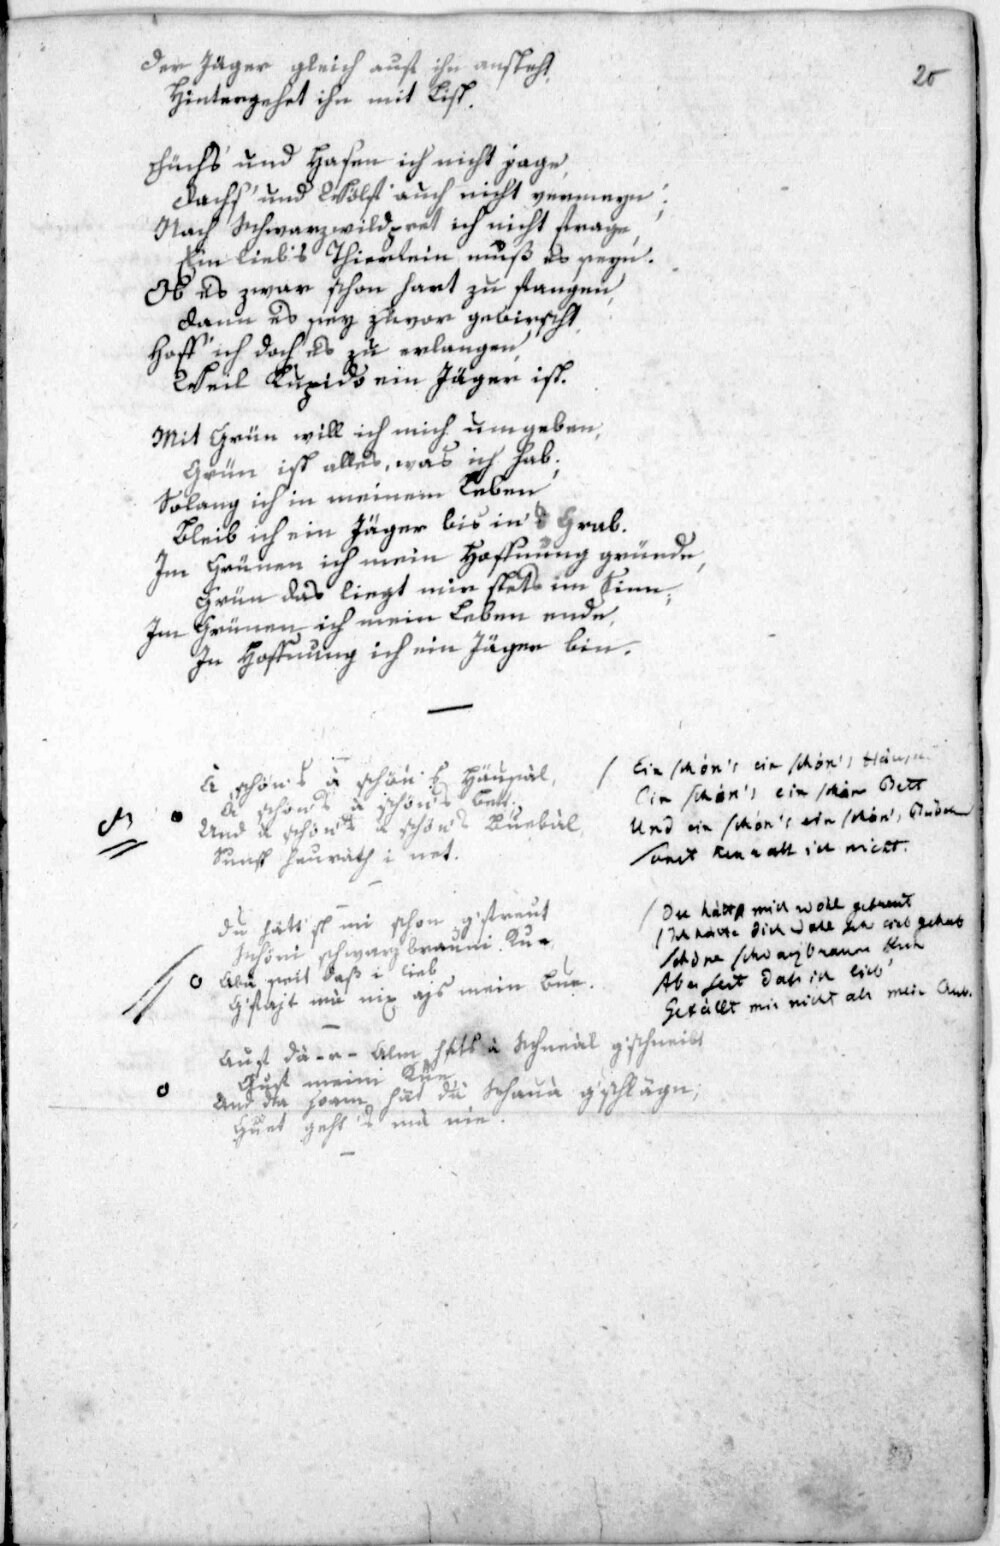 20
Der Jäger gleich auf ihn ansteht,
Hintergehet ihn mit List.
Füchs' und Hasen ich nicht jage,
Dachs' und Wölf' auch nicht vermeyn';
Nach Schwarzwildpret ich nicht frage,
Ein lieb's Thierlein muß es seyn.
Ob es zwar schon hart zu fangen,
Dann es sey zuvor gebirscht,
Hoff' ich doch es zu erlangen,
Weil Kupido ein Jäger ist.
Mit Grün will ich mich umgeben,
Grün ist alles, was ich hab';
Solang ich in meinem Leben
Bleib ich ein Jäger bis in's Grab.
Im Grünen ich mein Hoffnung gründe,
Grün das liegt mir stets im Sinn;
Im Grünen ich mein Leben ende,
In Hoffnung ich ein Jäger bin.
—
A schön's a schön's Häusäl,
A schön's a schön's Bett,
Und a schön's a schön's Buebäl,
Sunst heurath i net.
Ein schön's ein schön's
Ein schön's ein schön Bett
Und ein schön's ein schön's
sonst ich nicht.
Du hätt'st mi schon g'freut
Schöni schwarzbrauni Kue,
Aba seit daß i lieb
G'fajt mä nix ajs mein Bue.
Du hättst mich wohl gefreut
Ich hätte dich wohl lieb gehabt
Schöne schwarzbraune Kuh
Aber seit daß ich lieb'
Gefällt mir nicht als mein Bub.
Auf dä-r-Alm håts ä Schneäl g'schneibt
Auf meini Küe
Und da hoam hat dä Schauä g'schlägn,
Guet geht's mä nie.